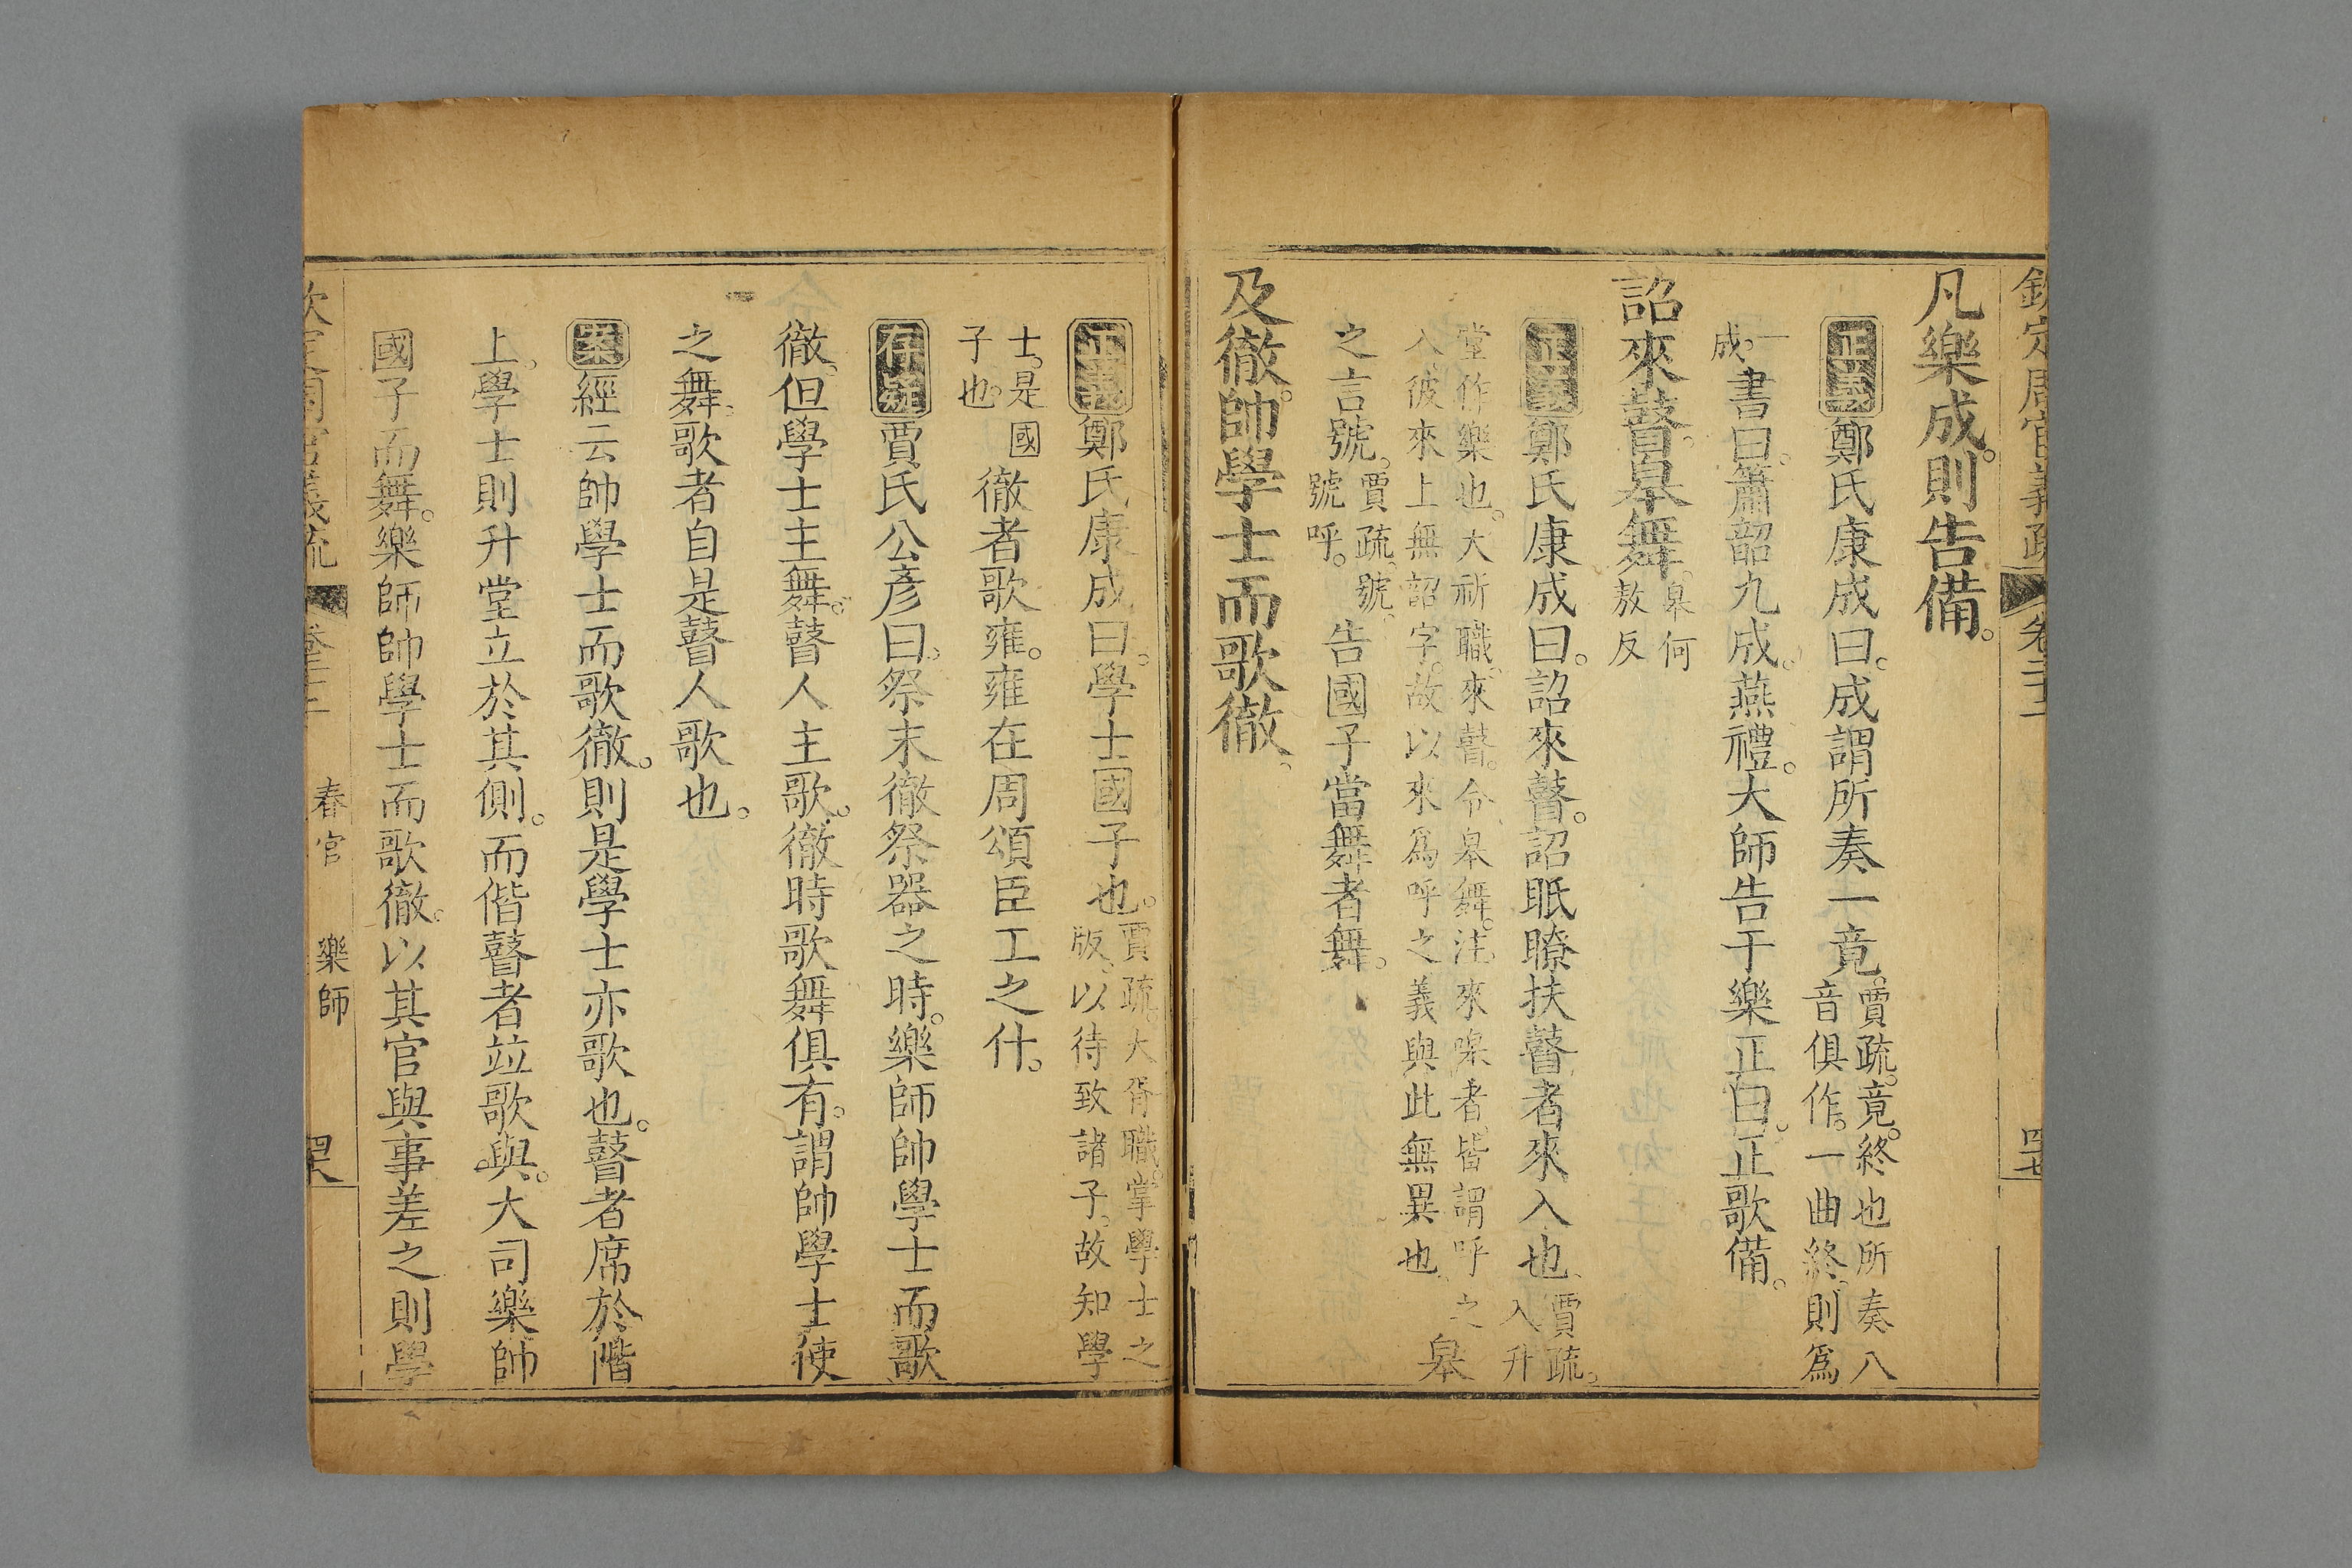 欽定周官義疏 卷二十二 四十七
凡樂成。則告備。
正義鄭氏康成曰。成謂所奏一竟。賈疏。竟。終也所奏八音俱作。一曲終。則爲
一成。書曰。簫韶九成。燕禮。大師告于樂正曰。正歌備。
詔來瞽。皋舞。皋何敖反
正義鄭氏康成曰。詔來瞽。詔眡瞭扶瞽者來入也、賈疏。入升
堂作樂也。大祈職。來瞽。令皋舞。注。來嘷者。皆謂呼之入、彼來上無詔字。故以來爲呼之義與此無異也、皋
之言號。賈疏。號。號呼。告國子當舞者舞。
及徹。帥學士而歌徹、
正義鄭氏康成曰。學士國子也。賈疏。大胥職。掌學士之版。以待致諸子。故知學
士。是國子也。徹者歌雍。雍在周頌臣工之什。
存疑賈氏公彥曰。祭末徹祭器之時。樂師帥學士而歌
徹。但學士主舞。瞽人主歌。徹時歌舞俱有。謂帥學士使
之舞。歌者自是瞽人歌也。
案經云帥學士而歌徹。則是學士亦歌也。瞽者席於階
上。學士則升堂立於其側。而偕瞽者竝歌與。大司樂帥
國子而舞。樂師帥學士而歌徹。以其官與事差之則學
欽定周官義疏 卷二十二 春官 樂師 四十八